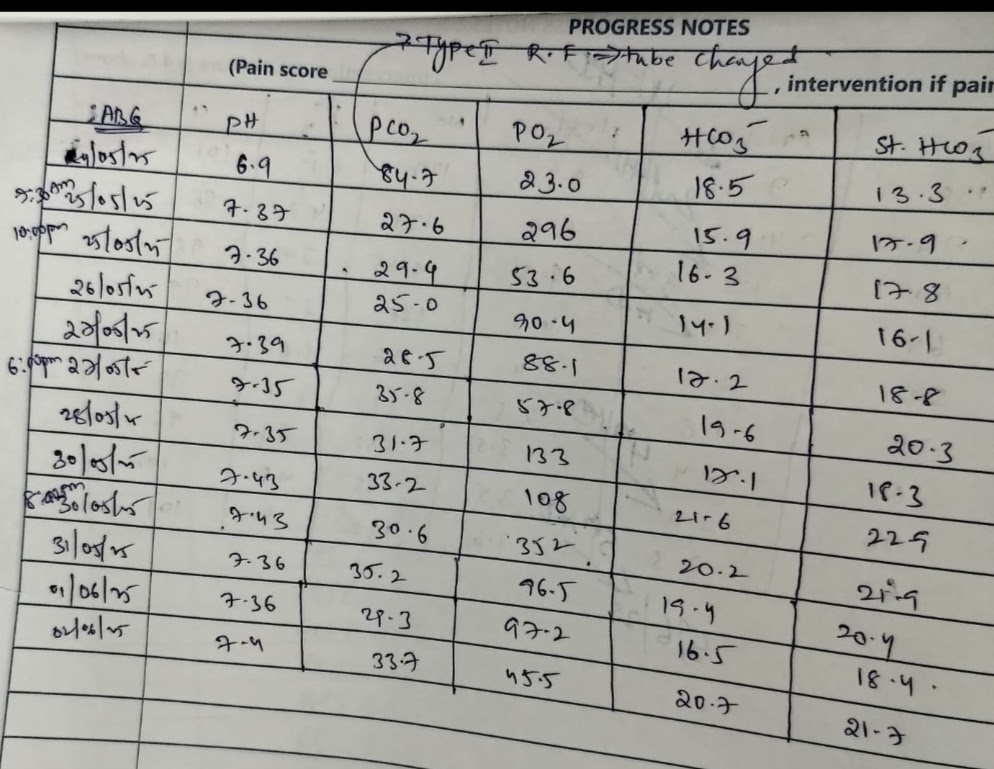 PROGRESS NOTES
→ Type II R.F ⇒ tube changed
(Pain score , intervention if pain
ABG pH PCO2 PO2 HCO3⁻ St. HCO3⁻
24/05/25 6.9 84.7 23.0 18.5 13.3
9:30am 25/05/25 7.37 27.6 296 15.9 17.9
10:00pm 25/05/25 7.36 29.4 53.6 16.3 17.8
26/05/25 7.36 25.0 90.4 14.1 16.1
27/05/25 7.39 28.5 88.1 17.2 18.8
6:00pm 27/05/25 7.35 35.8 57.8 19.6 20.3
28/05/25 7.35 31.7 133 17.1 18.3
30/05/25 7.43 33.2 108 21.6 22.9
30/05/25 7.43 30.6 352 20.2 21.9
31/05/25 7.36 35.2 96.5 19.4 20.4
01/06/25 7.36 29.3 97.2 16.5 18.4
02/06/25 7.4 33.7 45.5 20.7 21.7